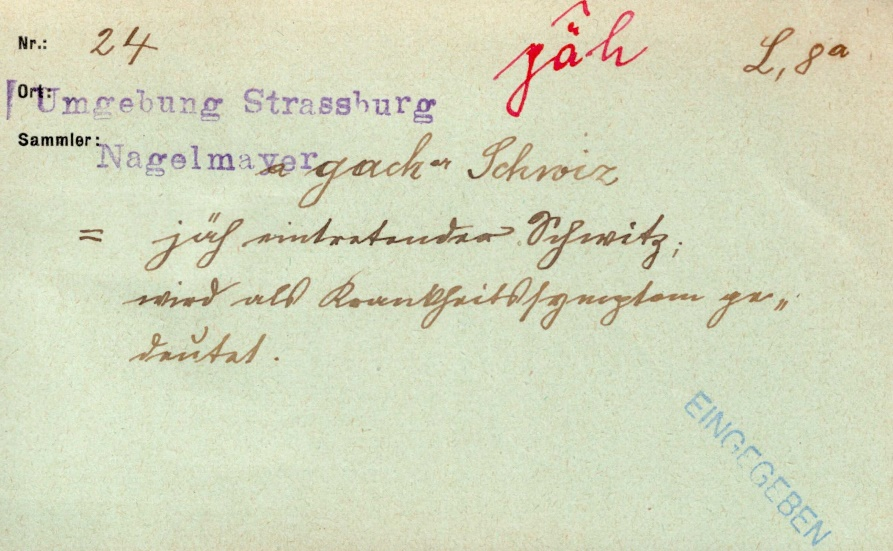 Nr.: 24 jäh L, 8a
Ort: Umgebung Strassburg
Sammler: Nagelmayer
a gacher Schwiz
= jäh eintretender Schwitz;
wird als Krankheitssymptom ge„
deutet.
EINGEGEBEN